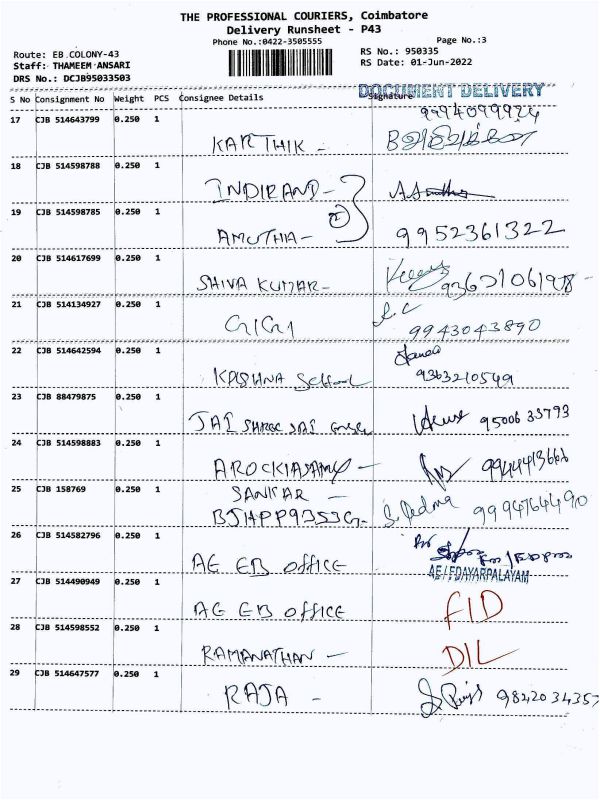 THE PROFESSIONAL COURIERS, Coimbatore
Delivery Runsheet - P43
Phone No.:0422-3505555
Page No.:3
Route: EB.COLONY-43
RS No.: 950335
Staff: THAMEEM ANSARI
RS Date: 01-Jun-2022
DRS No.: DCJB95033503
DOCUMENT DELIVERY
S No Consignment No Weight PCS Consignee Details Signature
17 CJB 514643799 0.250 1
KARTHIK -
18 CJB 514598788 0.250 1
19 CJB 514598785 0.250 1
AMUTHA - 9952361322
20 CJB 514617699 0.250 1
SHIVA KUMAR -
21 CJB 514134927 0.250 1
GIGI 9943043890
22 CJB 514642594 0.250 1
KRISHNA School 9363210549
23 CJB 88479875 0.250 1
JAI SHREE SAI 9500633793
24 CJB 514598883 0.250 1
AROCKIASAMY - 9944413666
25 CJB 158769 0.250 1
SANKAR -
9994764490
26 CJB 514582796 0.250 1
AE EB OFFICE
AE/EDAYARPALAYAM
27 CJB 514490949 0.250 1
AE EB OFFICE
28 CJB 514598552 0.250 1
RAMANATHAN - DIL
29 CJB 514647577 0.250 1
RAJA - 9842034357